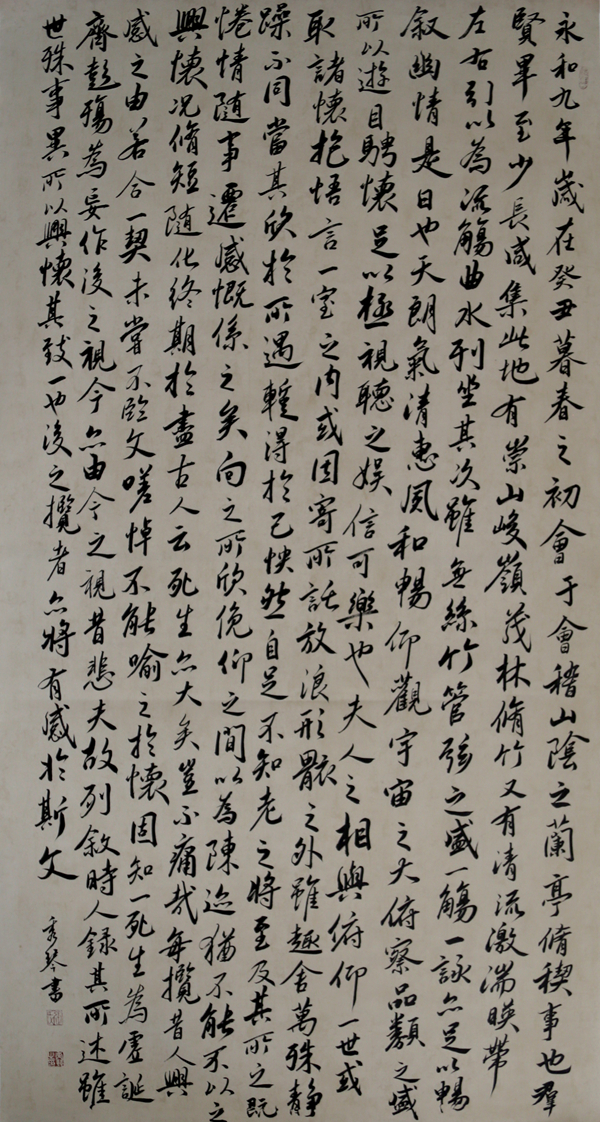 永和九年歲在癸丑暮春之初會于會稽山陰之蘭亭脩稧事也羣
賢畢至少長咸集此地有崇山峻嶺茂林脩竹又有清流激湍暎帶
左右引以為流觴曲水列坐其次雖無絲竹管弦之盛一觴一詠亦足以暢
叙幽情是日也天朗氣清惠風和暢仰觀宇宙之大俯察品類之盛
所以遊目騁懷足以極視聽之娛信可樂也夫人之相與俯仰一世或
取諸懷抱悟言一室之內或因寄所託放浪形骸之外雖趣舍萬殊靜
躁不同當其欣於所遇暫得於己怏然自足不知老之將至及其所之既
惓情隨事遷感慨係之矣向之所欣俛仰之間以為陳迹猶不能不以之
興懷況脩短隨化終期於盡古人云死生亦大矣豈不痛哉每攬昔人興
感之由若合一契未嘗不臨文嗟悼不能喻之於懷固知一死生為虛誕
齊彭殤為妄作後之視今亦由今之視昔悲夫故列敘時人錄其所述雖
世殊事異所以興懷其致一也後之攬者亦將有感於斯文
秀琴書